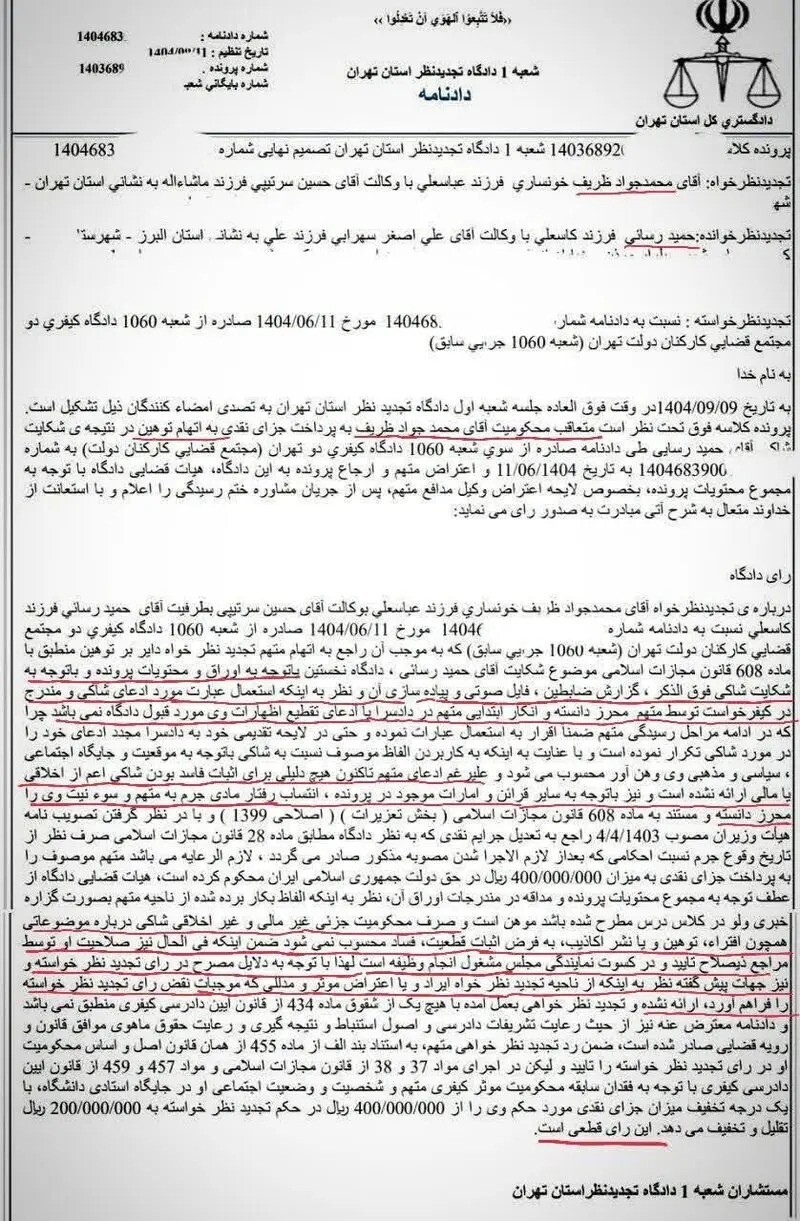 «فَلا تَتَّبِعُوا الْهَوي أَنْ تَعْدِلُوا»
شماره دادنامه : 1404683
تاریخ تنظیم :
شماره پرونده : 1403689
شماره بایگانی
شعبه 1 دادگاه تجدیدنظر استان تهران
دادنامه
دادگستري کل استان تهران
پرونده 14036892 شعبه 1 دادگاه تجدیدنظر استان تهران تصمیم نهایی شماره 1404683
تجدیدنظرخواه: آقای محمدجواد ظریف خونساري فرزند عباسعلي با وکالت آقای حسین سرتیپي فرزند ماشاءاله به نشاني استان تهران -
تجدیدنظرخوانده:حمید رسائي فرزند کاسعلي با وکالت آقای علي اصغر سهرابي فرزند علي به نشاني استان البرز - -
تجدیدنظرخواسته : نسبت به دادنامه شماره 140468 مورخ 1404/06/11 صادره از شعبه 1060 دادگاه کیفري دو
مجتمع قضایي کارکنان دولت تهران (شعبه 1060 جزایي سابق)
به نام خدا
به تاریخ 1404/09/09در وقت فوق العاده جلسه شعبه اول دادگاه تجدید نظر استان تهران به تصدی امضاء کنندگان ذیل تشکیل است.
پرونده کلاسه فوق تحت نظر است متعاقب محکومیت آقای محمد جواد ظریف به پرداخت جزای نقدی به اتهام توهین در نتیجه ی شکایت
آقای حمید رسایی طی دادنامه صادره از سوي شعبه 1060 دادگاه کیفری دو تهران (مجتمع قضائی کارکنان دولت) به شماره
1404683900 به تاریخ 11/06/1404 و اعتراض متهم و ارجاع پرونده به این دادگاه، هیات قضایی دادگاه با توجه به
مجموع محتویات پرونده، بخصوص لایحه اعتراض وکیل مدافع متهم، پس از جریان مشاوره ختم رسیدگی را اعلام و با استعانت از
خداوند متعال به شرح آتی مبادرت به صدور رای می نماید:
رای دادگاه
درباره ی تجدیدنظرخواه آقای محمدجواد ظریف خونساری فرزند عباسعلي بوکالت آقای حسین سرتیپی بطرفیت آقای حمید رسائي فرزند
کاسعلي نسبت به دادنامه شماره 1404 مورخ 1404/06/11 صادره از شعبه 1060 دادگاه کیفري دو مجتمع
قضایي کارکنان دولت تهران (شعبه 1060 جزایي سابق) که به موجب آن راجع به اتهام متهم تجدید نظر خواه دایر بر توهین منطبق با
ماده 608 قانون مجازات اسلامی موضوع شکایت آقای حمید رسائی ، دادگاه نخستین باتوجه به اوراق و محتویات پرونده و باتوجه به
شکایت شاکی فوق الذکر ، گزارش ضابطین ، فایل صوتی و پیاده سازی آن و نظر به اینکه استعمال عبارت مورد ادعای شاکی و مندرج
در کیفرخواست توسط متهم محرز دانسته و انکار ابتدایی متهم در دادسرا با ادعای تقطیع اظهارات وی مورد قبول دادگاه نمی باشد چرا
که در ادامه مراحل رسیدگی متهم ضمنا اقرار به استعمال عبارات نموده و حتی در لایحه تقدیمی خود به دادسرا مجدد ادعای خود را
در مورد شاکی تکرار نموده است و با عنایت به اینکه به کاربردن الفاظ موصوف نسبت به شاکی باتوجه به موقعیت و جایگاه اجتماعی
، سیاسی و مذهبی وی وهن آور محسوب می شود و علیرغم ادعای متهم تاکنون هیچ دلیلی برای اثبات فاسد بودن شاکی اعم از اخلاقی
یا مالی ارائه نشده است و نیز باتوجه به سایر قرائن و امارات موجود در پرونده ، انتساب رفتار مادی جرم به متهم و سوء نیت وی را
محرز دانسته و مستند به ماده 608 قانون مجازات اسلامی ( بخش تعزیرات ) ( اصلاحی 1399 ) و با در نظر گرفتن تصویب نامه
هیأت وزیران مصوب 4/4/1403 راجع به تعدیل جرایم نقدی که به نظر دادگاه مطابق ماده 28 قانون مجازات اسلامی صرف نظر از
تاریخ وقوع جرم نسبت احکامی که بعداز لازم الاجرا شدن مصوبه مذکور صادر می گردد ، لازم الرعایه می باشد متهم موصوف را
به پرداخت جزای نقدی به میزان 400/000/000 ریال در حق دولت جمهوری اسلامی ایران محکوم کرده است، هیات قضایی دادگاه از
عطف توجه به مجموع محتویات پرونده و مداقه در مندرجات اوراق آن، نظر به اینکه الفاظ بکار برده شده از ناحیه متهم بصورت گزاره
خبری ولو در کلاس درس مطرح شده باشد موهن است و صرف محکومیت جزئی غیر مالی و غیر اخلاقی شاکی درباره موضوعاتی
همچون افتراء، توهین و یا نشر اکاذیب، به فرض اثبات قطعیت، فساد محسوب نمی شود ضمن اینکه فی الحال نیز صلاحیت او توسط
مراجع ذیصلاح تایید و در کسوت نمایندگی مجلس مشغول انجام وظیفه است لهذا با توجه به دلایل مصرح در رای تجدید نظر خواسته و
نیز جهات پیش گفته نظر به اینکه از ناحیه تجدید نظر خواه ایراد و یا اعتراض موثر و مدللی که موجبات نقض رای تجدید نظر خواسته
را فراهم آورد، ارائه نشده و تجدید نظر خواهی بعمل آمده با هیچ یک از شقوق ماده 434 از قانون آیین دادرسی کیفری منطبق نمی باشد
و دادنامه معترض عنه نیز از حیث رعایت تشریفات دادرسی و اصول استنباط و نتیجه گیری و رعایت حقوق ماهوی موافق قانون و
رویه قضایی صادر شده است، ضمن رد تجدید نظر خواهی متهم، به استناد بند الف از ماده 455 از همان قانون اصل و اساس محکومیت
او در رای تجدید نظر خواسته را تایید و لیکن در اجرای مواد 37 و 38 از قانون مجازات اسلامی و مواد 457 و 459 از قانون ایین
دادرسی کیفری با توجه به فقدان سابقه محکومیت موثر کیفری متهم و شخصیت و وضعیت اجتماعی او در جایگاه استادی دانشگاه، با
یک درجه تخفیف میزان جزای نقدی مورد حکم وی را از 400/000/000 ریال در حکم تجدید نظر خواسته به 200/000/000 ریال
تقلیل و تخفیف می دهد. این رای قطعی است.
مستشاران شعبه 1 دادگاه تجدیدنظر استان تهران